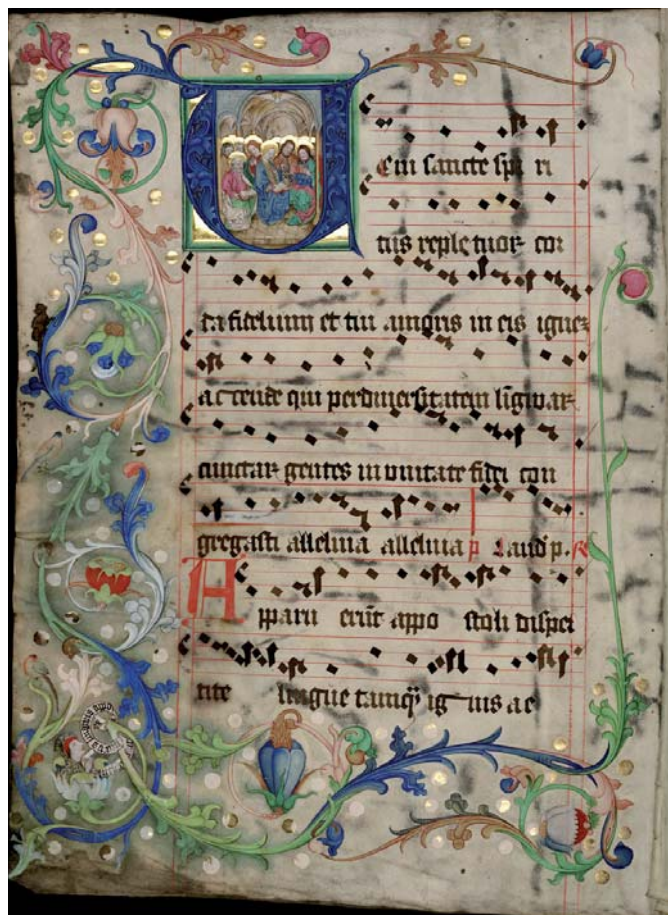 Veni sancte spi ri
tus reple tuor cor
da fidelium et tui amoris in eis ignez
accende qui per diuersitatem lingwar
cunctar gentes in vnitate fidei con
gregasti alleluia alleluia p Laud p. R
A pparu erūt appo stoli disper
tite lingue tamq̄ ig nis ac